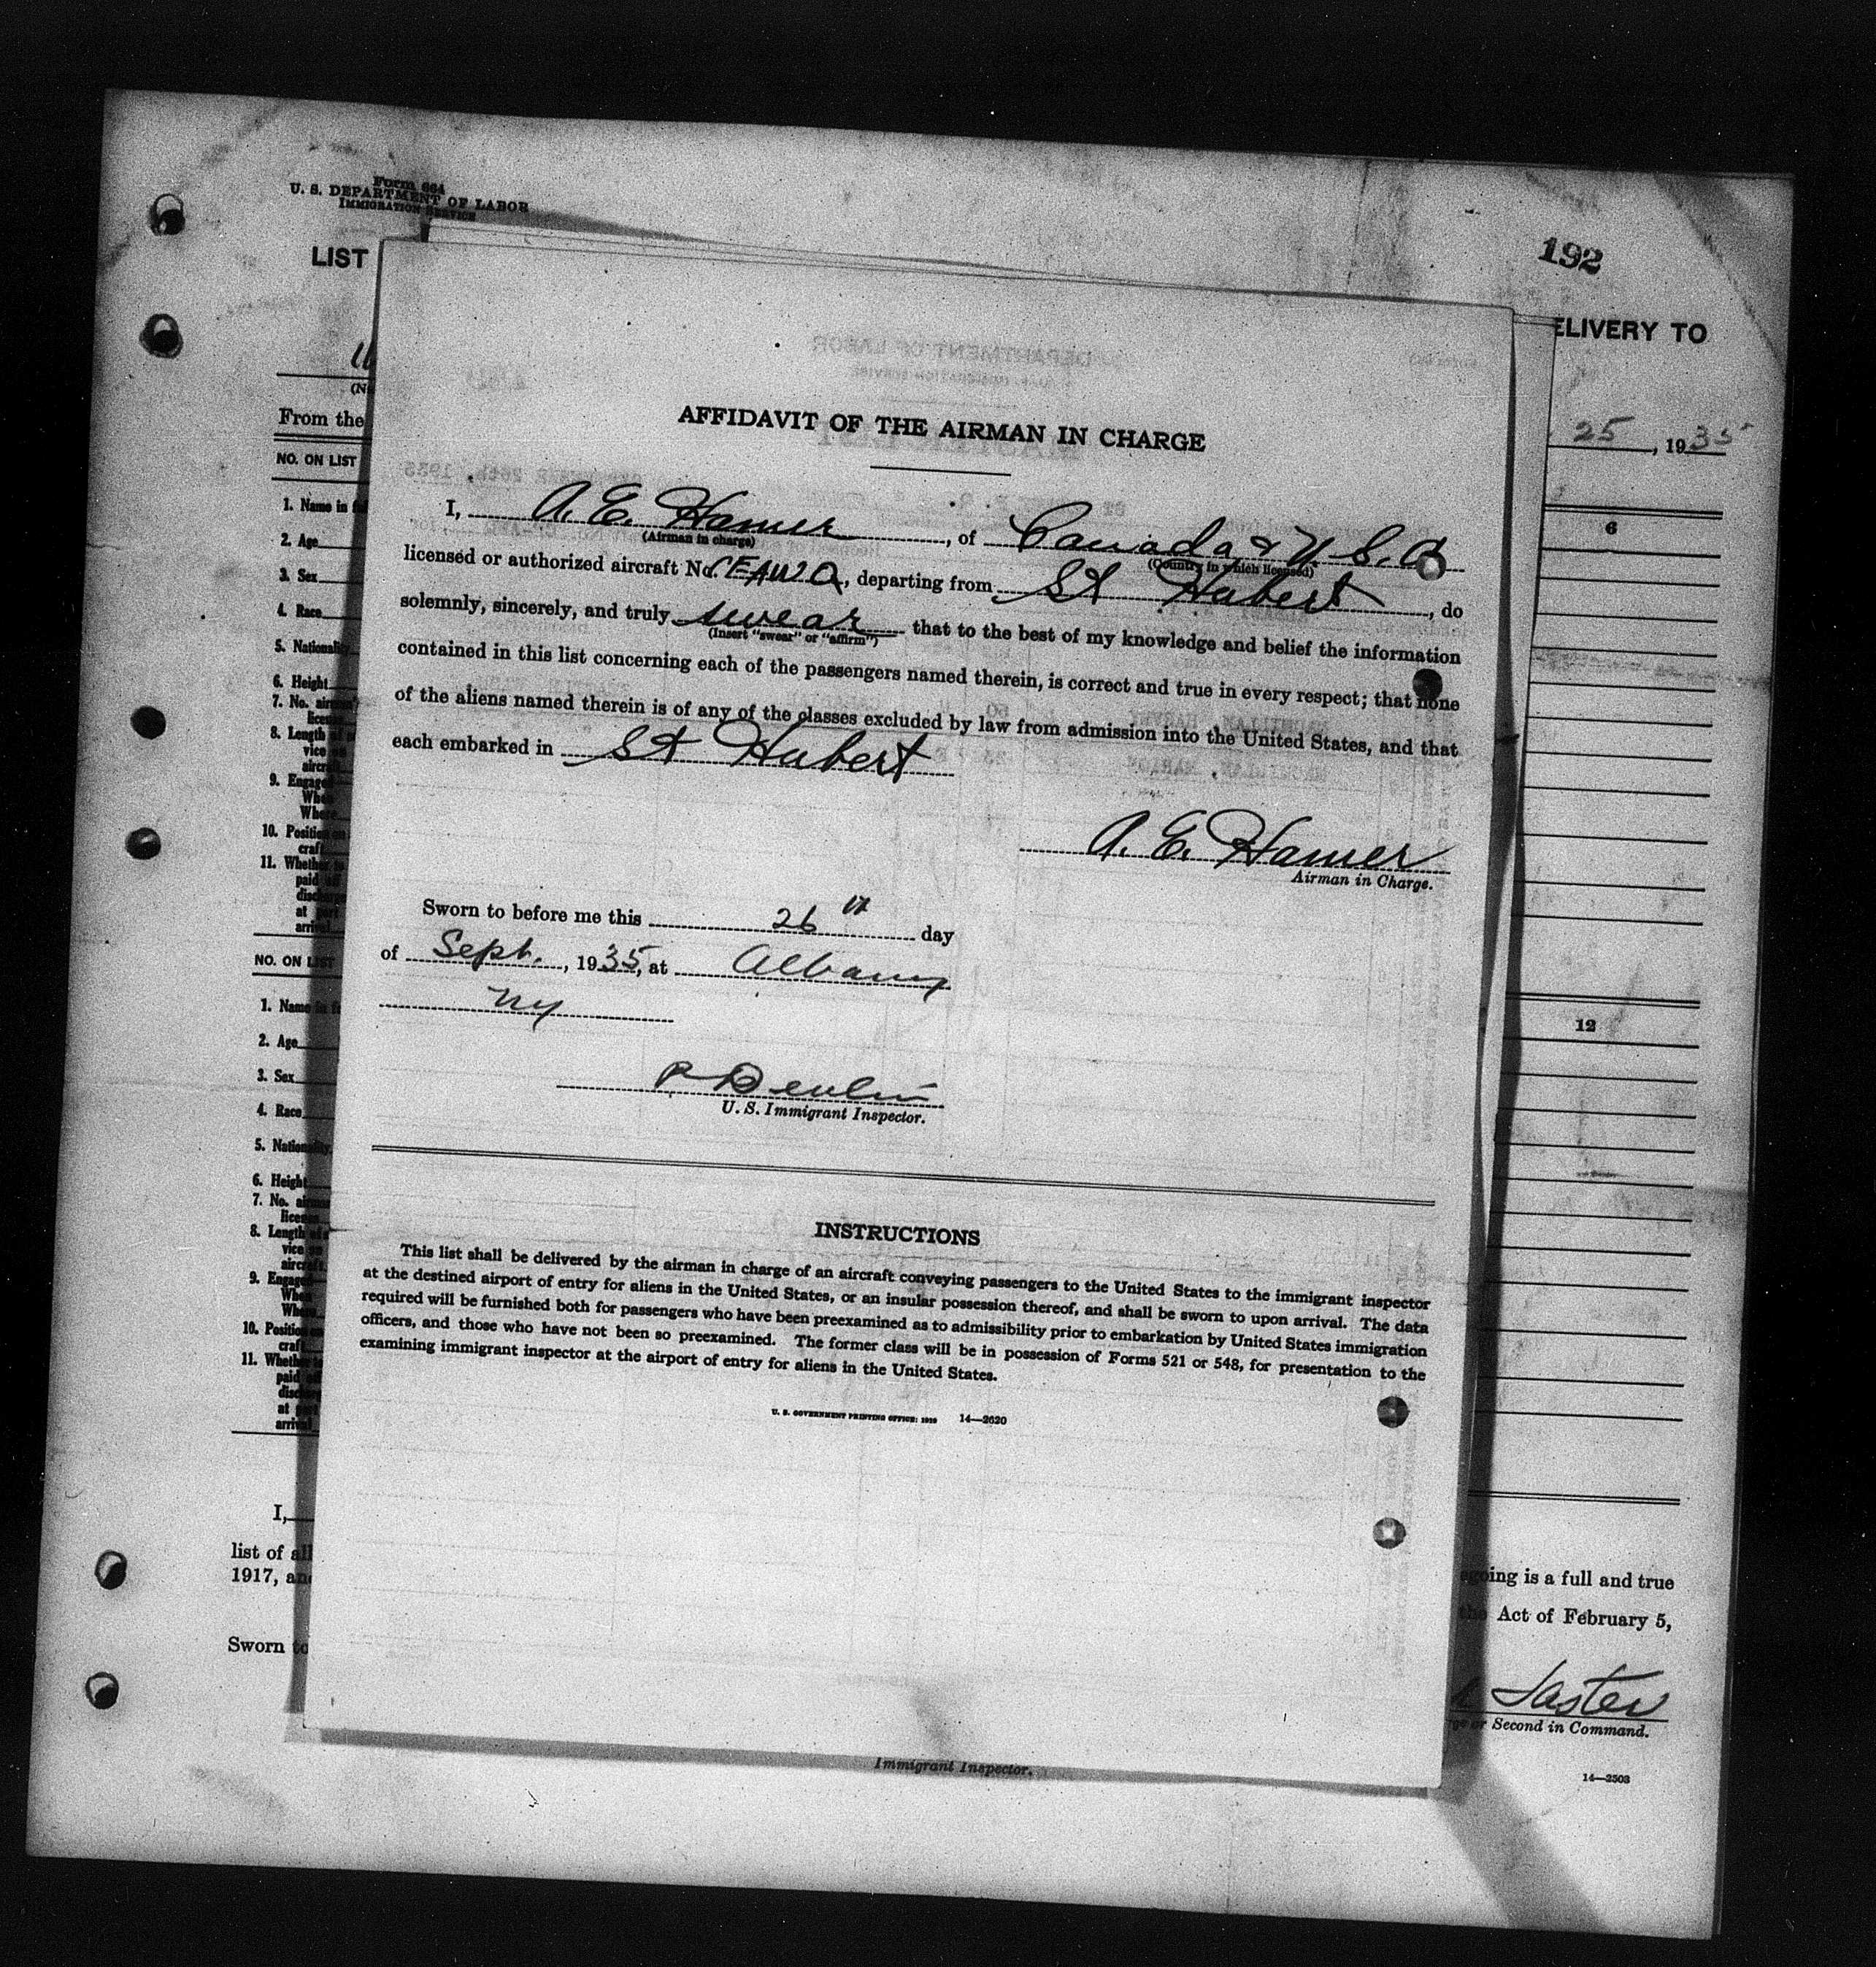 Form 664
U. S. DEPARTMENT OF LABOR
IMMIGRATION SERVICE
192
LIST
ELIVERY TO
25, 1935
From the
NO. ON LIST
6
1. Name in
2. Age
3. Sex
4. Race
5. Nationality
6. Height
7. No. airman's
license
8. Length of
vice on
aircraft
9. Engaged
When
Where
10. Position on
craft
11. Whether to
paid off
discharge
at port
arrival
NO. ON LIST
12
1. Name in
2. Age
3. Sex
4. Race
5. Nationality
6. Height
7. No. airman's
license
8. Length of
vice on
aircraft
9. Engaged
When
Where
10. Position
craft
11. Whether to
paid off
discharge
at port
arrival
I,
list of all
1917, and
Sworn to
egoing is a full and true
the Act of February 5,
Laster
ge or Second in Command.
Immigrant Inspector.
14—2503
AFFIDAVIT OF THE AIRMAN IN CHARGE
I, A. E. Hamer, of Canada & U. S. A
(Airman in charge) (Country in which licensed)
licensed or authorized aircraft No. CFAWQ, departing from St Hubert, do
solemnly, sincerely, and truly swear that to the best of my knowledge and belief the information
(Insert "swear" or "affirm")
contained in this list concerning each of the passengers named therein, is correct and true in every respect; that none
of the aliens named therein is of any of the classes excluded by law from admission into the United States, and that
each embarked in St Hubert
A. E. Hamer
Airman in Charge.
Sworn to before me this 26th day
of Sept., 1935, at Albany
NY
P Devlin
U. S. Immigrant Inspector.
INSTRUCTIONS
This list shall be delivered by the airman in charge of an aircraft conveying passengers to the United States to the immigrant inspector
at the destined airport of entry for aliens in the United States, or an insular possession thereof, and shall be sworn to upon arrival. The data
required will be furnished both for passengers who have been preexamined as to admissibility prior to embarkation by United States immigration
officers, and those who have not been so preexamined. The former class will be in possession of Forms 521 or 548, for presentation to the
examining immigrant inspector at the airport of entry for aliens in the United States.
U. S. GOVERNMENT PRINTING OFFICE: 1929 14—2620